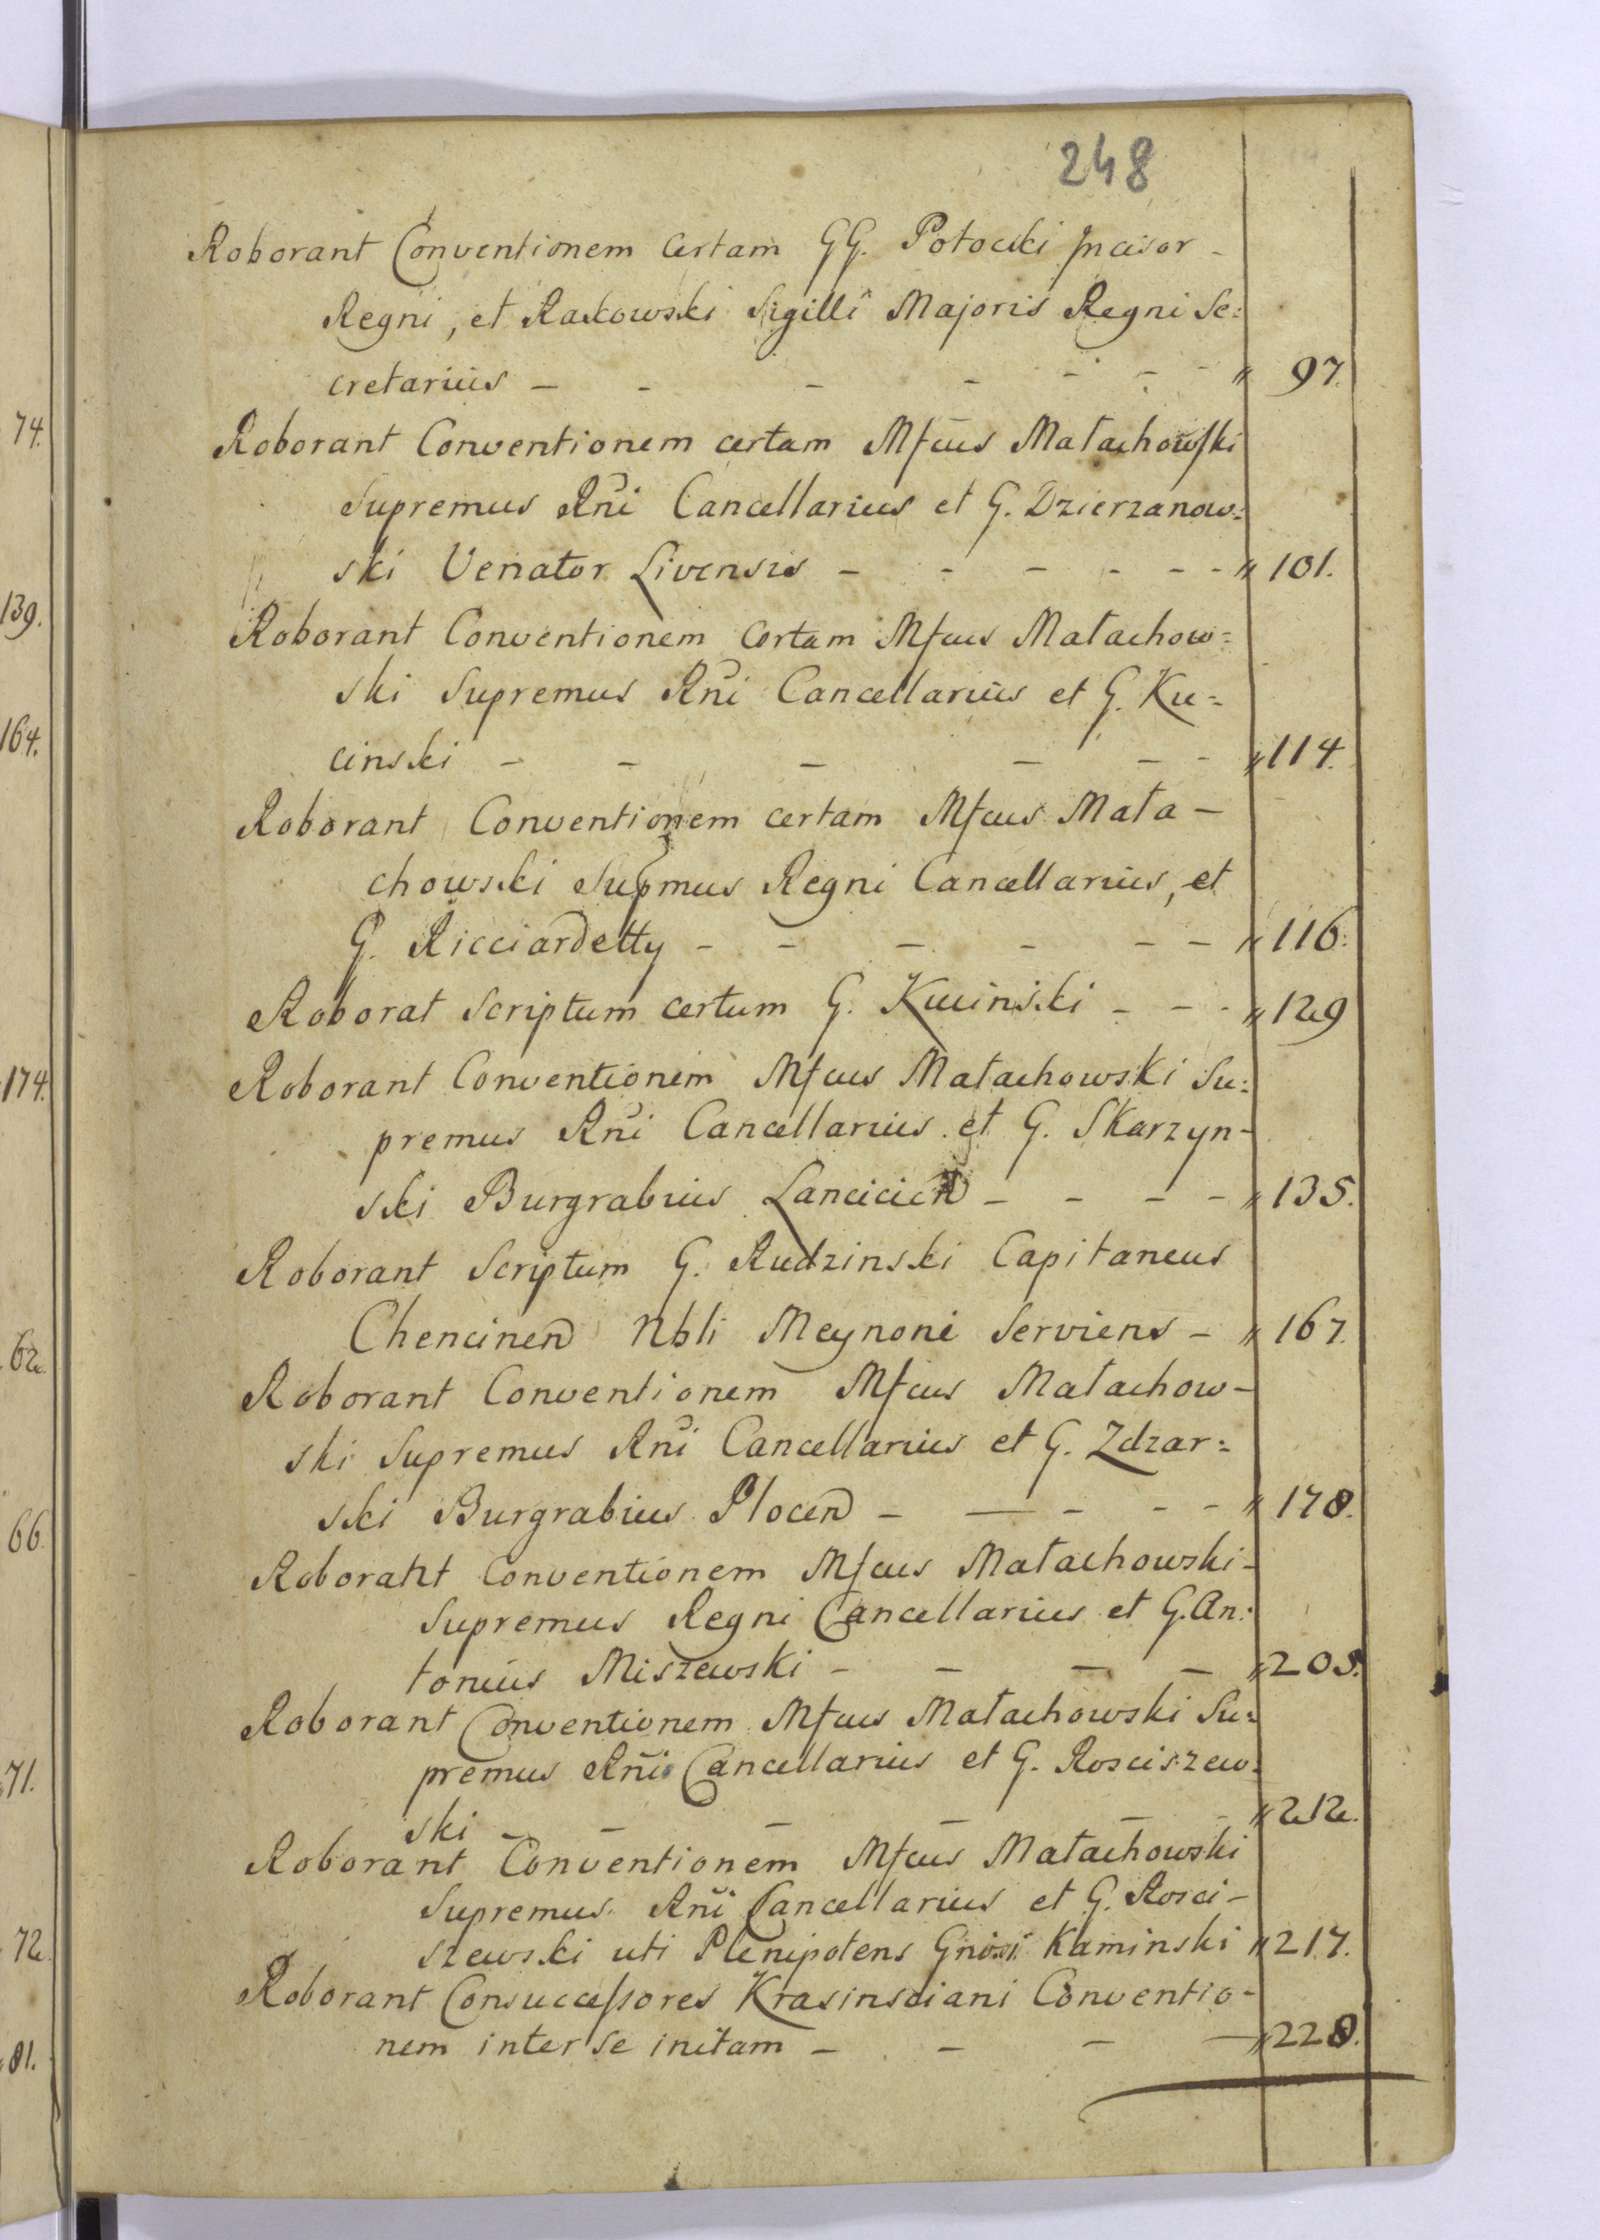 248
Roborant Conventionem certam GG. Potocki Incisor
Regni, et Raskowski Sigilli Majoris Regni Se:
cretarius — — — — — — — " 97.
74.
Roborant Conventionem certam Mfcus Małachowski
Supremus Rni Cancellarius et G. Dzierzanow:
ski Venator Livensis — — — — — — " 101.
139.
Roborant Conventionem certam Mfcus Małachow:
ski Supremus Rni Cancellarius et G. Ku:
164.
cinski — — — — — — " 114.
Roborant Conventionem certam Mfcus Mała—
chowski Supmus Regni Cancellarius, et
G. Ricciardetty — — — — — — " 116.
Roborat Scriptum certum G. Kucinski — — — " 129
174.
Roborant Conventionem Mfcus Małachowski Su:
premus Rni Cancellarius et G. Skarzyn-
ski Burgrabius Lancicien — — — — " 135.
Roborant Scriptum G. Rudzinski Capitaneus
Chencinen Nbli Meynoni Serviens — " 167.
62.
Roborant Conventionem Mfcus Małachow—
ski Supremus Rni Cancellarius et G. Zdzar:
ski Burgrabius Plocen — — — — — " 178.
66.
Roborant Conventionem Mfcus Małachowski—
Supremus Regni Cancellarius et G. An:
tonius Miszewski — — — — " 205.
Roborant Conventionem Mfcus Małachowski Su:
premus Rni Cancellarius et G. Rosciszew:
71.
ski — — — — — — " 212.
Roborant Conventionem Mfcus Małachowski
Supremus Rni Cancellarius et G. Rosci—
72.
szewski uti Plenipotens Gnosi Kaminski " 217.
Roborant Consuccessores Krasinsciani Conventio-
nem inter se initam — — — — " 228.
81.